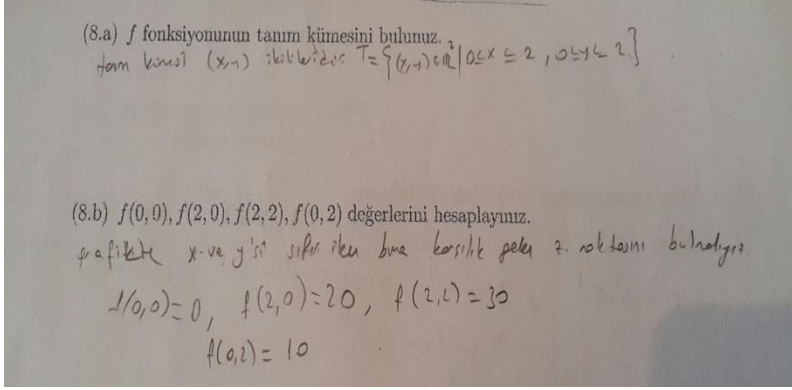 (8.a) f fonksiyonunun tanım kümesini bulunuz.
tanım kümesi (x,y) ikilileridir T={(x,y)∈R²|0≤x≤2, 0≤y≤2}
(8.b) f(0,0), f(2,0), f(2,2), f(0,2) değerlerini hesaplayınız.
grafikte x-ve y'si sıfır iken buna karşılık gelen z. noktasını bulmalıyız
f(0,0)=0, f(2,0)=20, f(2,2)=30
f(0,2)=10